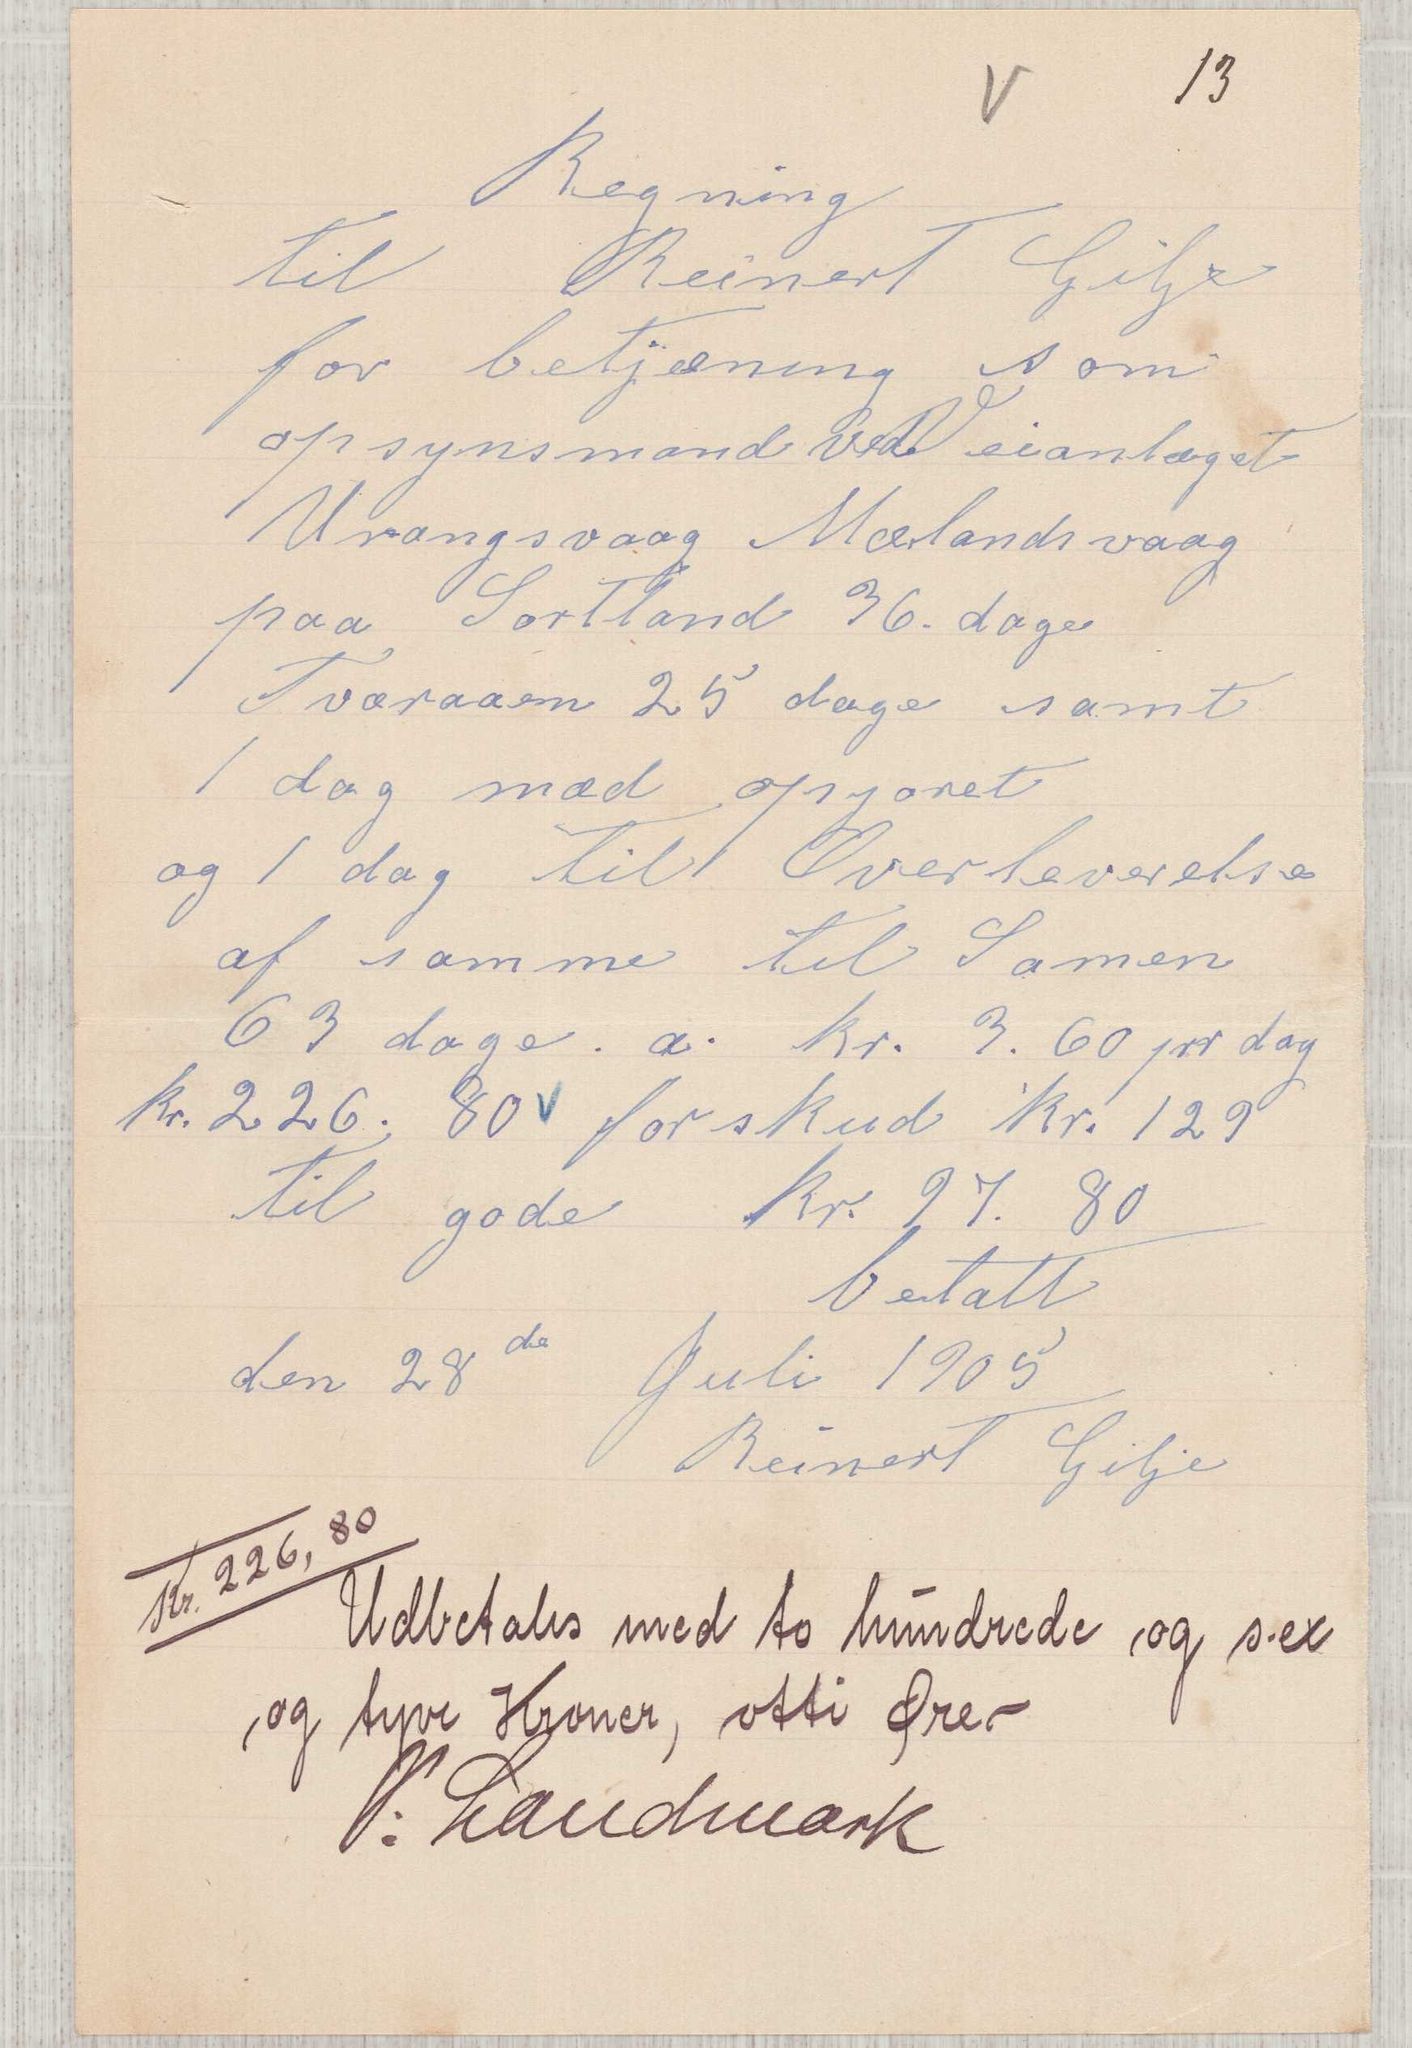 V 13
Regning
til Reinert Gilje
for betjæning som
opsynsmand ved Veianlæget
Urangsvaag Mælandsvaag
paa Sortland 36. dage
Tværaaen 25 dage samt
1 dag mæd opgjøret
og 1 dag til Overleverelse
af samme til Samen
63 dage. a. kr. 3.60 prr dag
kr. 226. 80 V forskud kr. 129
til gode kr. 97. 80
betalt
den 28de Juli 1905
Reinert Gilje
Kr. 226,80
Udbetales med to hundrede og sex
og tyve Kroner, otti Øre.-
P. Landmark